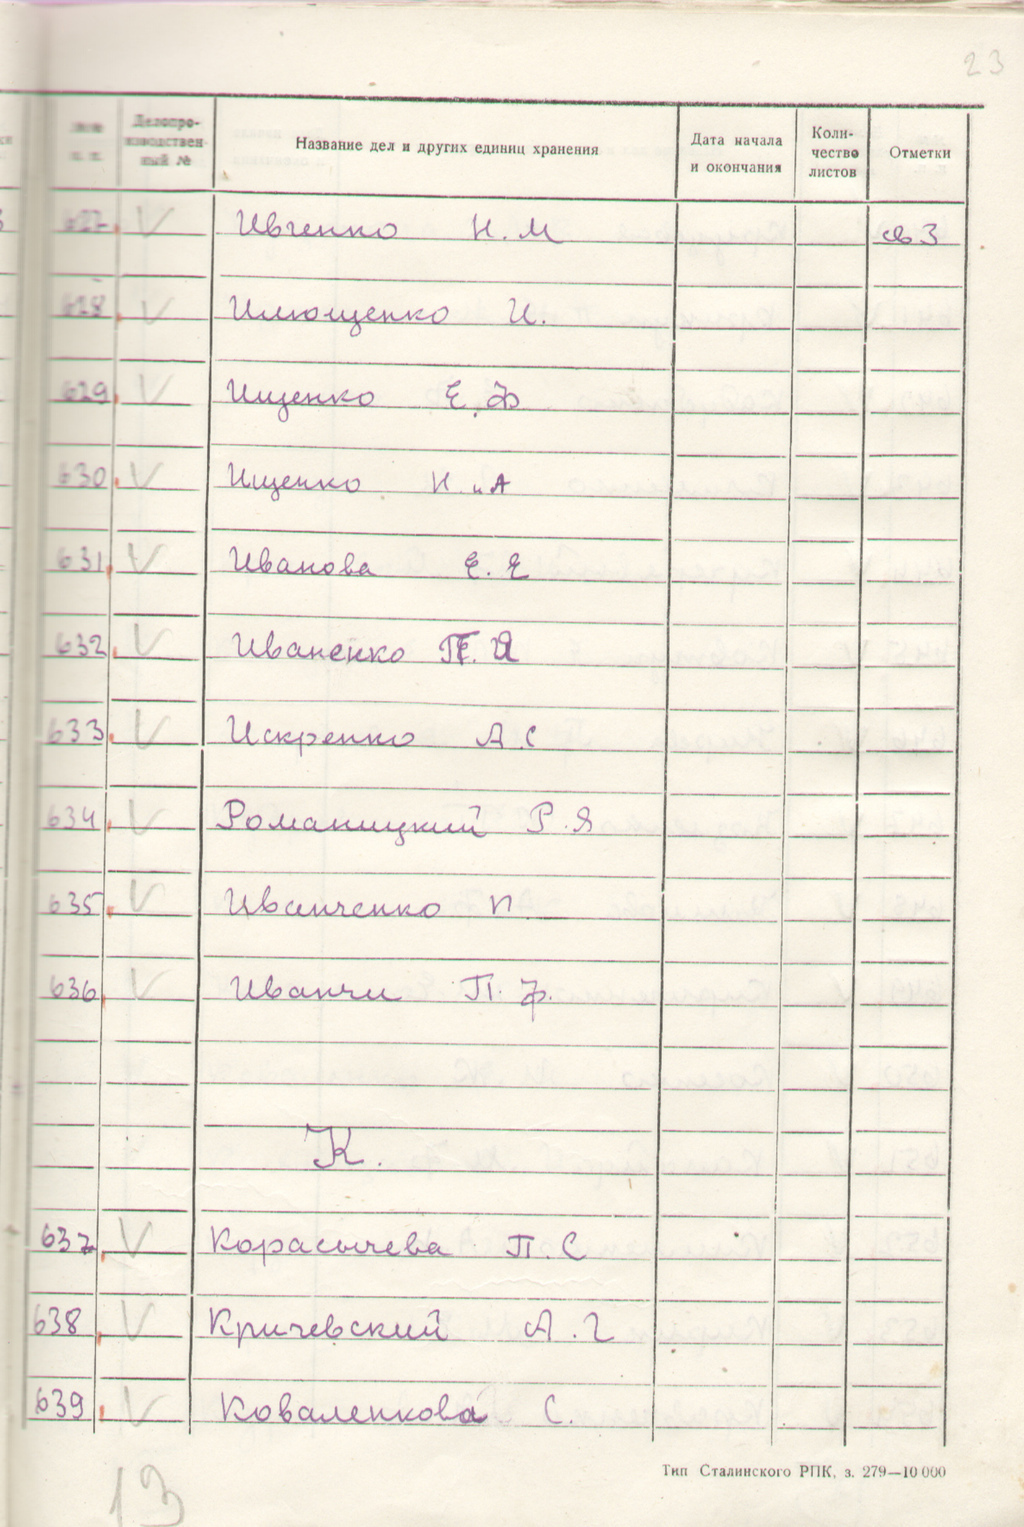 23
Делопроизводственный №
Название дел и других единиц хранения
Дата начала и окончания
Количество листов
Отметки
627. V Ивченко Н. М
628. V Илющенко И.
629. V Ищенко Е. Ф
630. V Ищенко Н. и А
631. V Иванова Е. Е
632. V Иваненко
633. V Искренко А. С
634. V Романицкий Р. Я
635. V Иванченко П
636. V Иванчи П. Ф.
К.
637. V Корасычева П. С
638. V Кричевский А. Г
639. V Коваленкова С.
Тип Сталинского РПК, з. 279—10 000
13